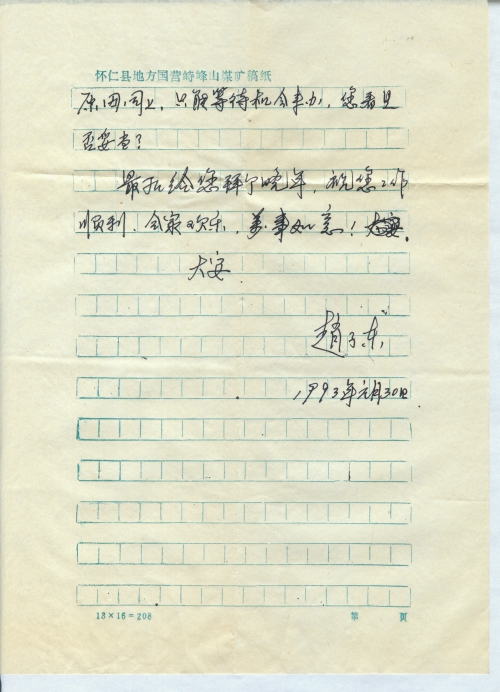 怀仁县地方国营峙峰山煤矿稿纸
原因同上，只能等待机会来办，您看是
否妥当？
最后给您拜个晚年，祝您工作
顺利，全家欢乐，万事如意！
大安
赵子东
1993年元月30日
13×16＝208
第 页